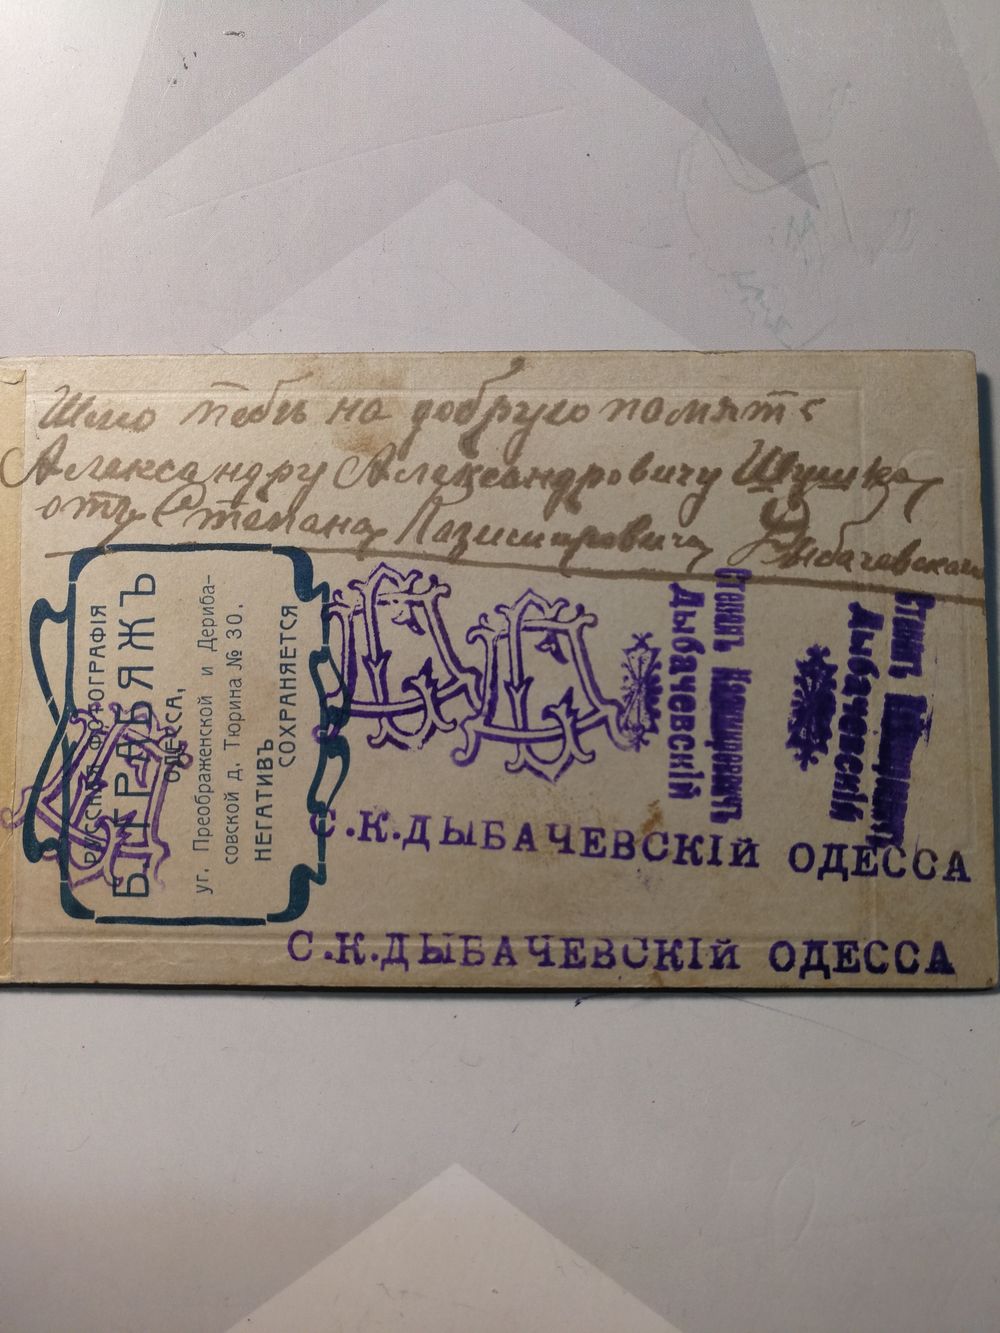 Шлю тебѣ на добрую память
Александру Александровичу
отъ Степана Казимировича Дыбачевскаго
РУССКАЯ ФОТОГРАФІЯ
БІТРАБЯЖЪ
ОДЕССА,
уг. Преображенской и Дериба-
совской д. Тюрина № 30.
НЕГАТИВЪ
СОХРАНЯЕТСЯ
Степанъ Казимировичъ
Дыбачевскій
Дыбачевскій
С.К.ДЫБАЧЕВСКІЙ ОДЕССА
С.К.ДЫБАЧЕВСКІЙ ОДЕССА